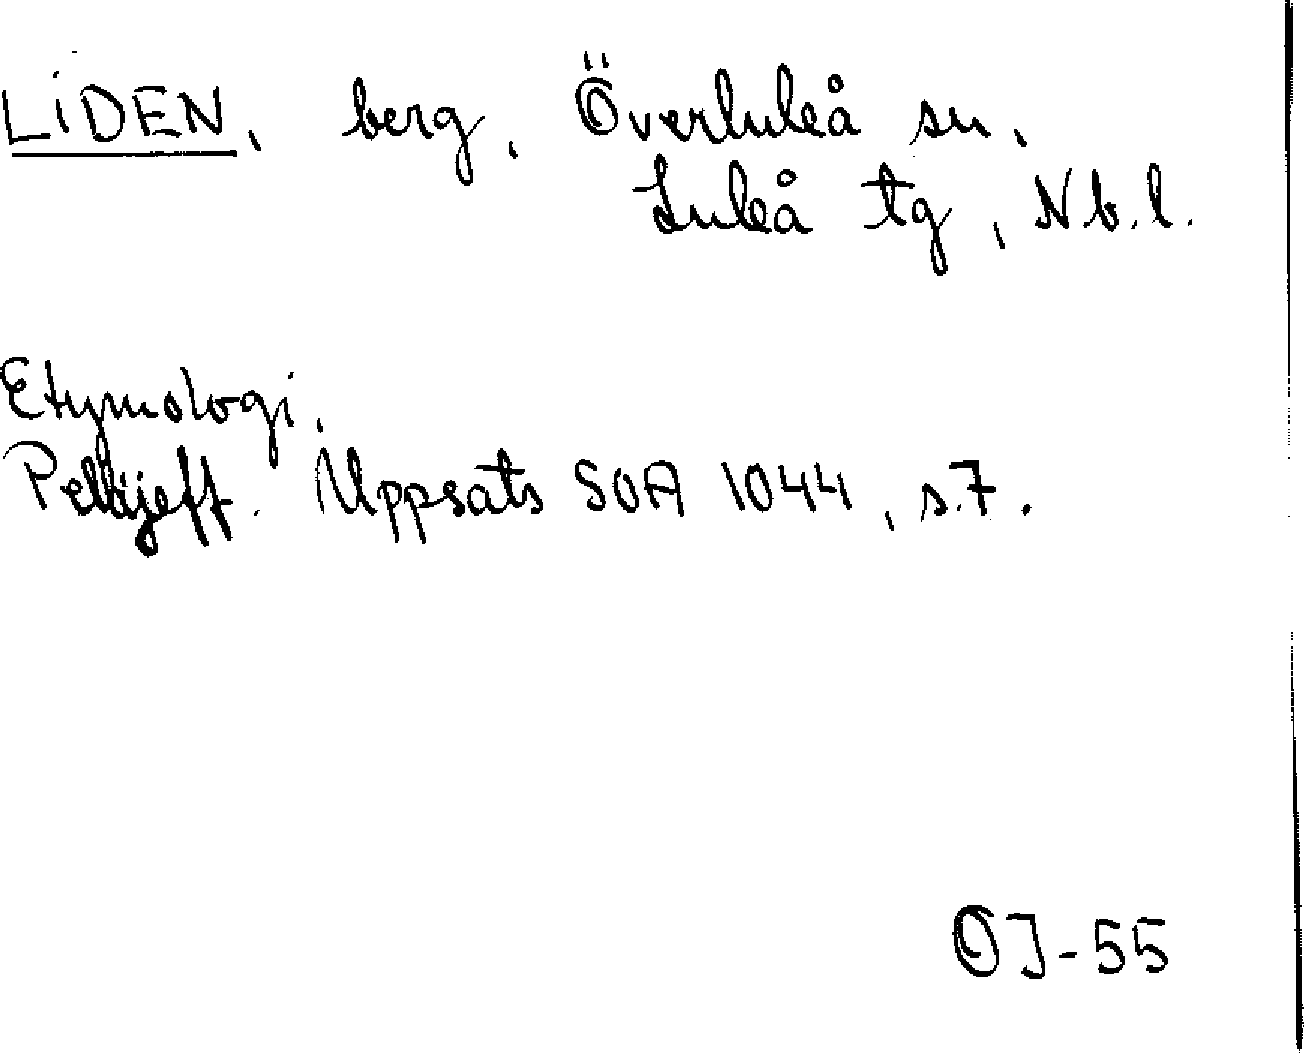 LIDEN, berg, Överluleå sn,
Luleå tg, Nb.l.
Etymologi.
Pellijeff. Uppsats SOA 1044, s.7.
OJ-55